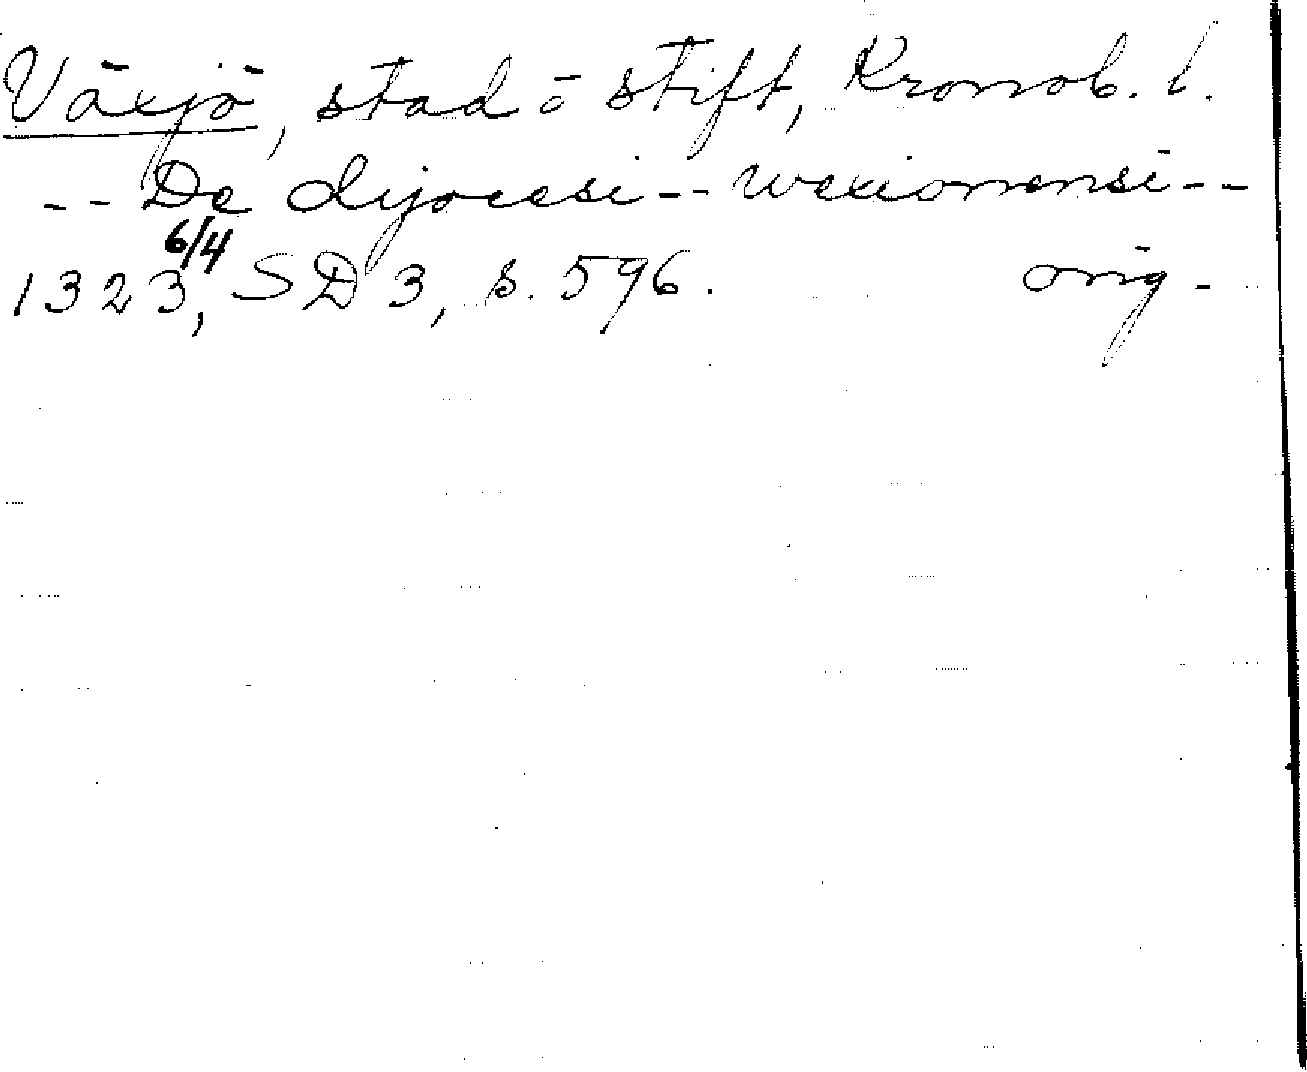 Växjö, stad o stift, Kronob. l.
-- De dijocesi -- wexionensi --
1323 6/4, SD 3, s. 596. orig.